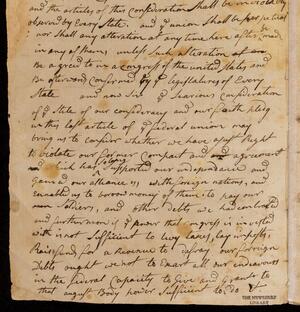 and the articles of this confideration shall be inviolably
observed by Every State and ye union Shall be perpetual
nor Shall any alteration at any time hereafter be made
in any of them, unless such alteration
Be agreed to in a congress of the united States and
Be afterward Confirmed by ye Legeslatures of Every
State and now Sir ye Searious Consideration
of ye State of our confideracy and our faith pledg
in this last article of ye federal union may
bring us to consider whether we have a just Right
to violate our former Compact and agreement
which has Supported our independance and
gained our alliance with foreign nations, and
Enabled us to borrow money of them to pay our
men Soldiers, and other debts we Contracted
and furthermore if ye power that congress is invested
with is not Sufficient to Levy taxes, lay imposts,
Raise fund for a Revenue to defray our foreign
Debts ought we not to Exart all our Endeavours
in the fedral Capacity to Give and Grant to
that august Body power Sufficient to do it
THE NEWBERRY
LIBRARY